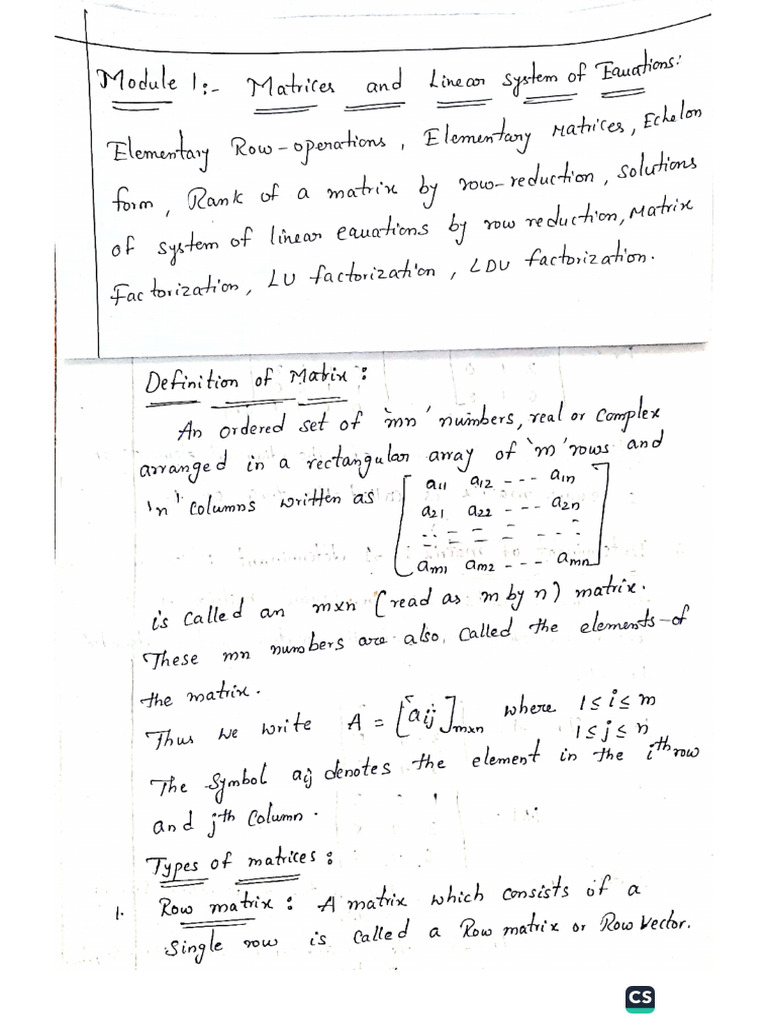 Module 1:- Matrices and Linear System of Equations:
Elementary Row-operations, Elementary Matrices, Echelon
form, Rank of a matrix by row-reduction, Solutions
of system of linear equations by row reduction, Matrix
Factorization, LU factorization, LDU factorization.
Definition of Matrix:
An ordered set of 'mn' numbers, real or Complex
arranged in a rectangular array of 'm' rows and
'n' Columns written as [ a11 a12 --- a1n
a21 a22 --- a2n
am1 am2 --- amn ]
is called an mxn (read as m by n) matrix.
These mn numbers are also, called the elements of
the matrix.
Thus we write A = [aij]mxn where 1 ≤ i ≤ m
1 ≤ j ≤ n
The Symbol aij denotes the element in the ith row
and jth Column.
Types of matrices:
1. Row matrix: A matrix which consists of a
Single row is called a Row matrix or Row Vector.
CS